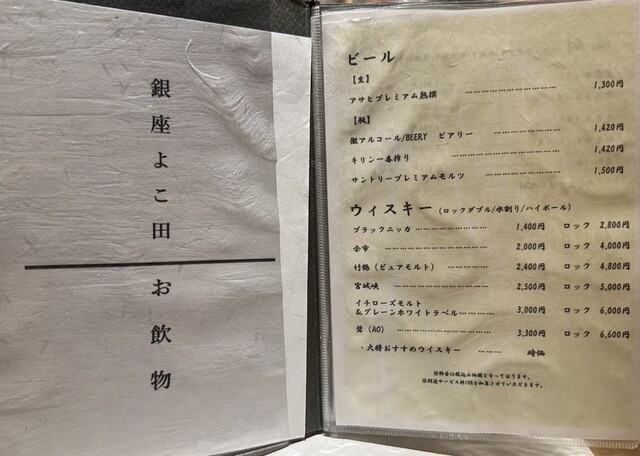 銀座よこ田 お飲物
ビール
【生】
アサヒプレミアム熟撰 ………………………… 1,300円
【瓶】
微アルコール/BEERY ビアリー ………………………… 1,420円
キリン一番搾り ………………………… 1,420円
サントリープレミアムモルツ ………………………… 1,500円
ウィスキー (ロックダブル/水割り/ハイボール)
ブラックニッカ ………………… 1,400円 ロック 2,800円
余市 ………………………… 2,000円 ロック 4,000円
竹鶴(ピュアモルト) ………………… 2,400円 ロック 4,800円
宮城峡 ………………………… 2,500円 ロック 5,000円
イチローズモルト
&グレーンホワイトラベル………… 3,000円 ロック 6,000円
碧(AO) ………………………… 3,300円 ロック 6,600円
・大将おすすめウイスキー ……… 時価
※料金は税込み価格となっております。
※別途サービス料10%を加算させていただきます。